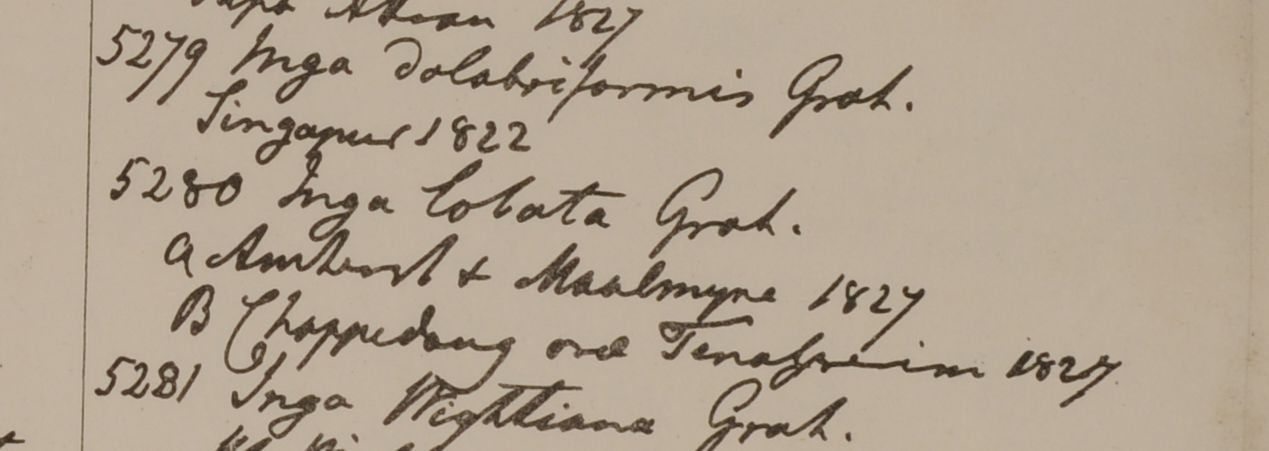 1827
5279 Inga dolabriformis Grah.
Singapur 1822
5280 Inga lobata Grah.
a Amherst & Maulmyne 1827
B Chappedong Tenasserim 1827
5281 Inga Wightiana Grah.